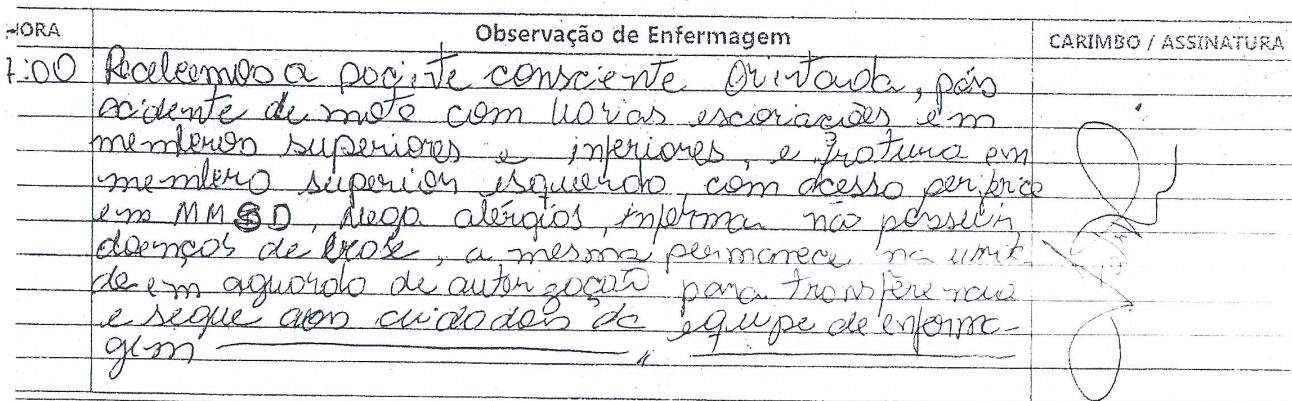 HORA Observação de Enfermagem CARIMBO / ASSINATURA
1:00 Recebemos a pacite consciente Orintada, pós
acidente de moto com várias escoriações em
membros superiores e inferiores, e fratura em
membro superior esquerdo, com acesso periferico
em MMSD, nega alérgias, informa não possuir
doenças de base, a mesma permanece na unit
de em aguardo de autorização para transferencia
e segue aos cuidados da equipe de enferma-
gem